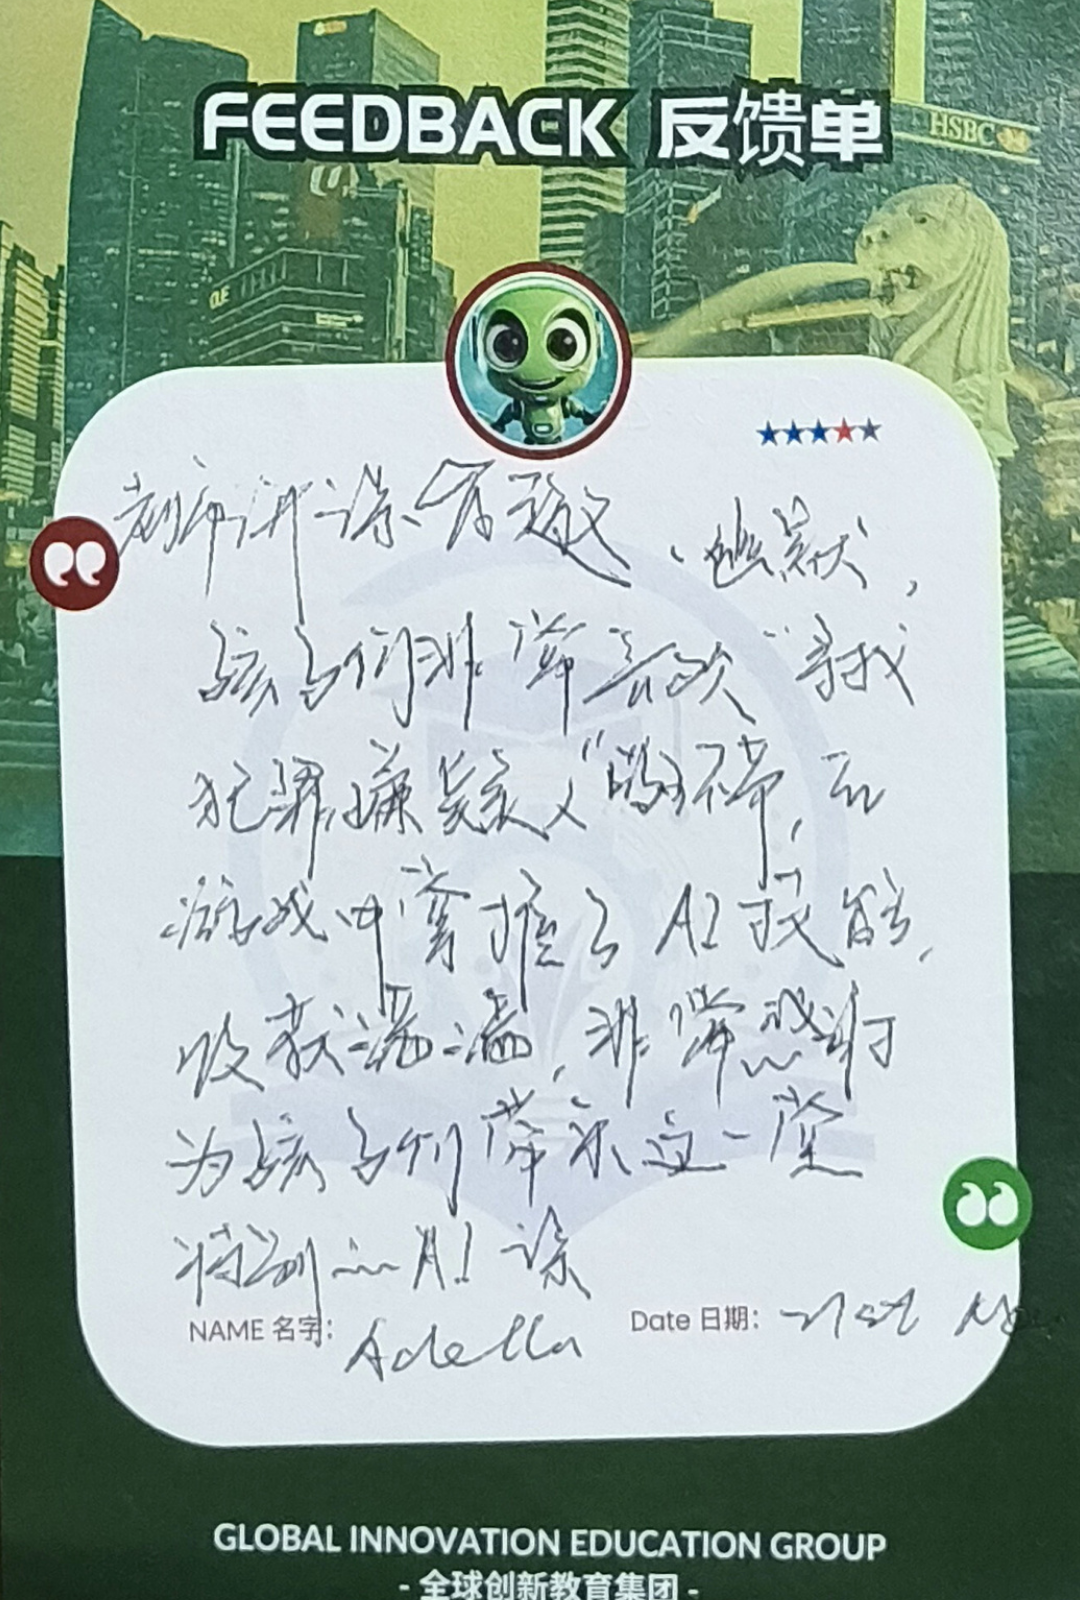 FEEDBACK 反馈单
HSBC
OUE
老师讲课有趣、幽默，
孩子们非常喜欢“寻找
犯罪嫌疑人”的环节，在
游戏中掌握了AI技能，
收获满满，非常感谢
为孩子们带来这一堂
特别的AI课
NAME 名字： Adella
Date 日期： 21st Nov
GLOBAL INNOVATION EDUCATION GROUP
- 全球创新教育集团 -